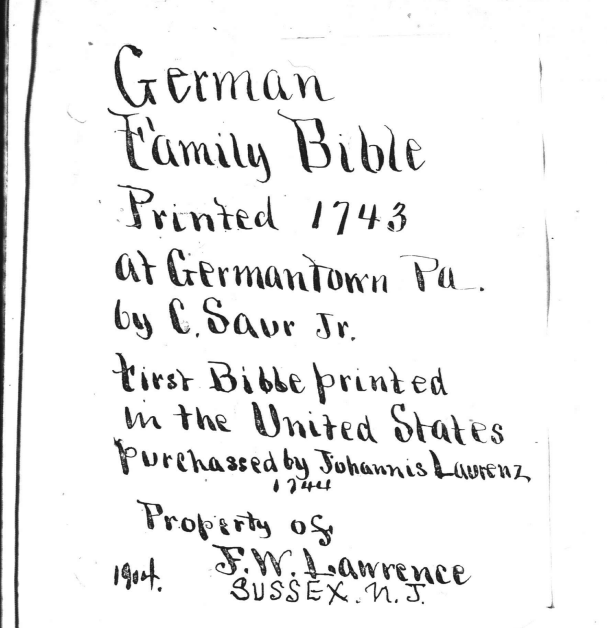 German
Family Bible
Printed 1743
at Germantown Pa.
by C. Saur Jr.
first Bibbe printed
in the United States
purchassed by Johannis Laurenz
1744
Property of
F. W. Lawrence
1904. SUSSEX. N. J.